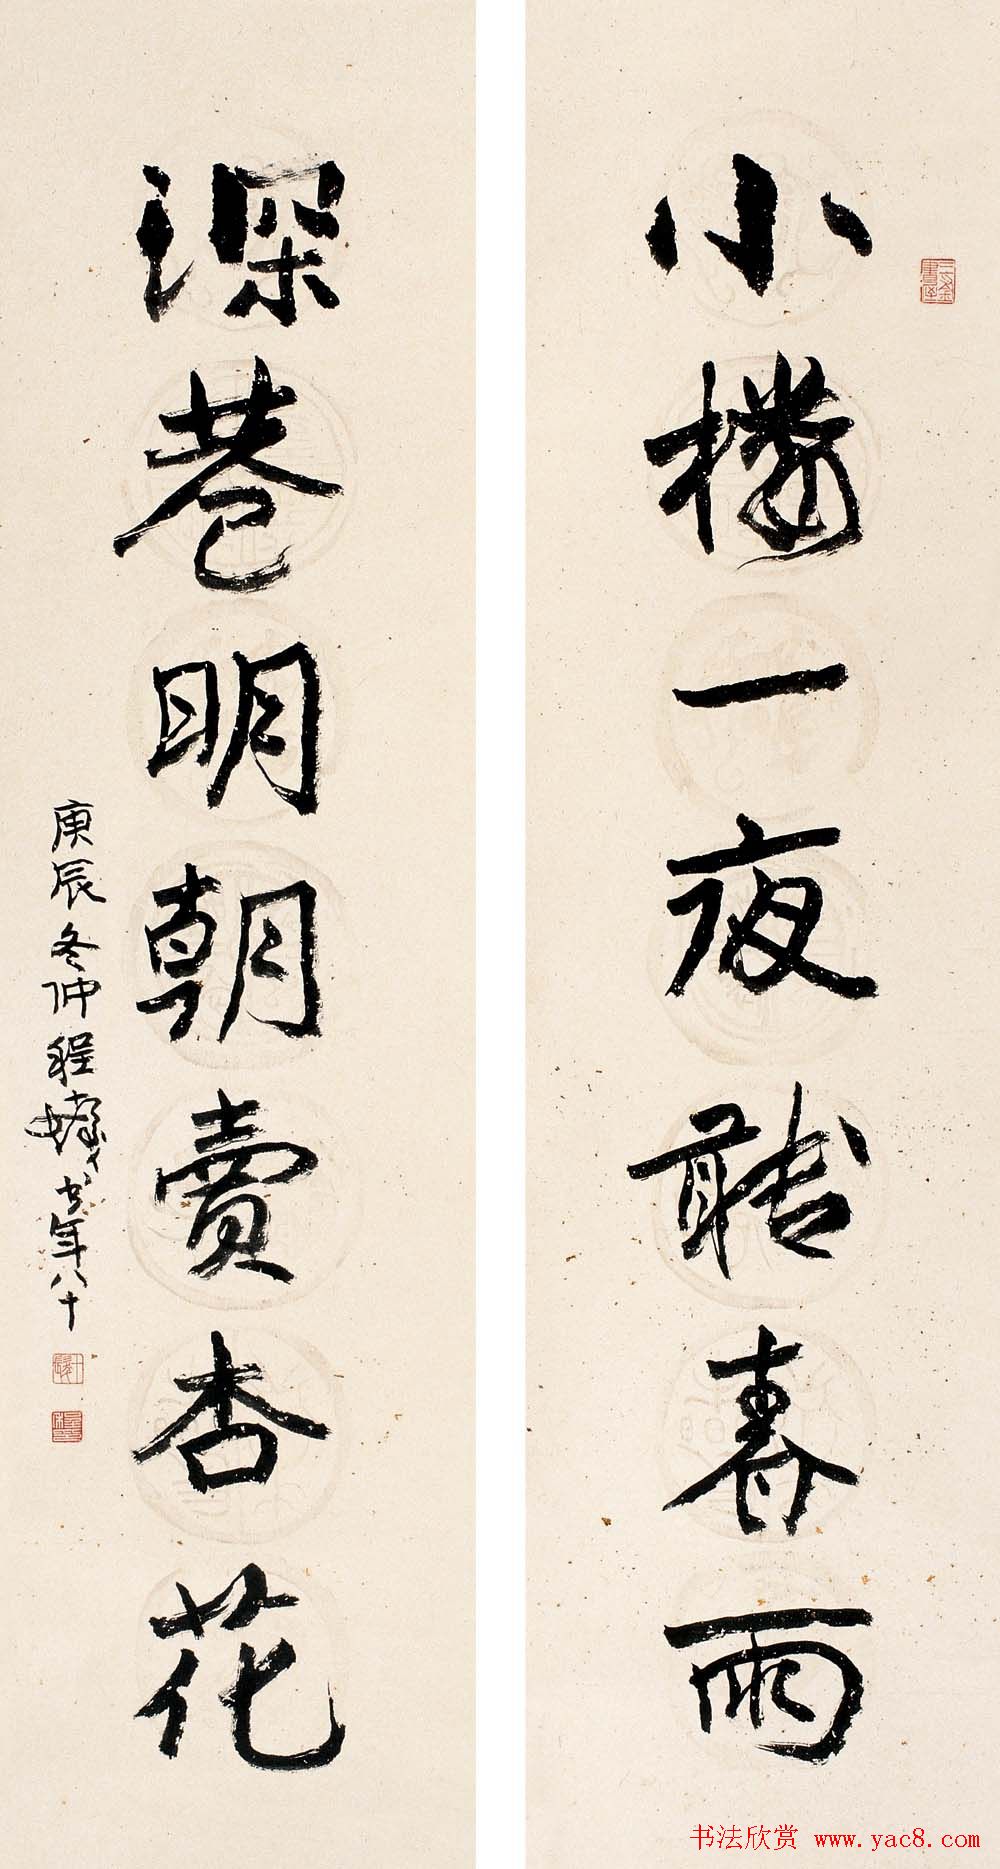 小樓一夜聽春雨
深巷明朝賣杏花
庚辰冬仲程十髮书年八十
书法欣赏 www.yac8.com